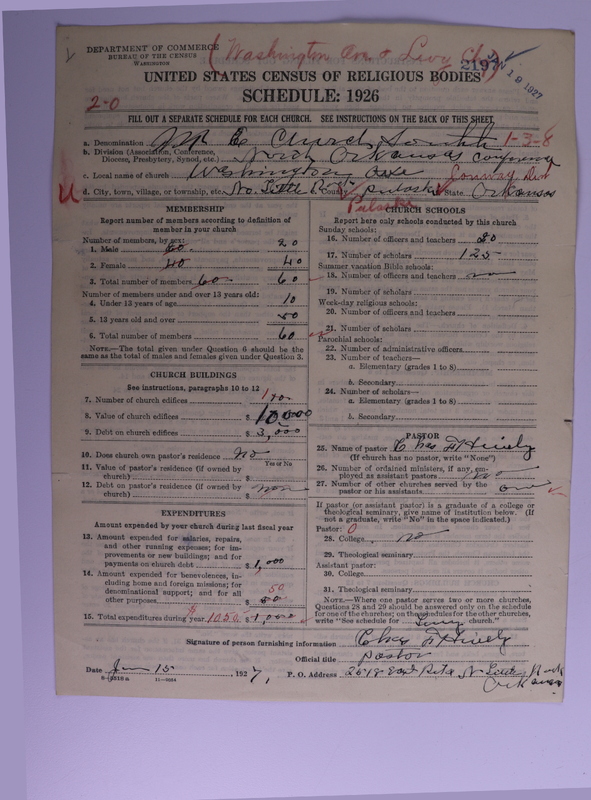 DEPARTMENT OF COMMERCE
BUREAU OF THE CENSUS
WASHINGTON
(Washington Ave & Levy Chg)
2197
JAN 19 1927
UNITED STATES CENSUS OF RELIGIOUS BODIES
SCHEDULE: 1926
2-0
FILL OUT A SEPARATE SCHEDULE FOR EACH CHURCH. SEE INSTRUCTIONS ON THE BACK OF THIS SHEET.
a. Denomination M E Church South 1-3-8
b. Division (Association, Conference, Diocese, Presbytery, Synod, etc.) North Arkansas Conference
c. Local name of church Washington Ave Conway Dist
d. City, town, village, or township, etc. No. Little Rock County Pulaski State Arkansas
Pulaski
MEMBERSHIP
Report number of members according to definition of member in your church
Number of members, by sex:
1. Male 20
2. Female 40 40
3. Total number of members 60 60
Number of members under and over 13 years old:
4. Under 13 years of age 10
5. 13 years old and over 50
6. Total number of members 60
NOTE.—The total given under Question 6 should be the same as the total of males and females given under Question 3.
CHURCH BUILDINGS
See instructions, paragraphs 10 to 12
7. Number of church edifices 1
8. Value of church edifices $ 10,000
9. Debt on church edifices $ 3,000
10. Does church own pastor's residence? No
Yes or No
11. Value of pastor's residence (if owned by church) $
12. Debt on pastor's residence (if owned by church) $
EXPENDITURES
Amount expended by your church during last fiscal year
13. Amount expended for salaries, repairs, and other running expenses; for improvements or new buildings; and for payments on church debt $ 1,000
14. Amount expended for benevolences, including home and foreign missions; for denominational support; and for all other purposes $ 50
15. Total expenditures during year $ 1050 $
CHURCH SCHOOLS
Report here only schools conducted by this church
Sunday schools:
16. Number of officers and teachers 20
17. Number of scholars 125
Summer vacation Bible schools:
18. Number of officers and teachers no
19. Number of scholars
Week-day religious schools:
20. Number of officers and teachers
21. Number of scholars
Parochial schools:
22. Number of administrative officers
23. Number of teachers—
a. Elementary (grades 1 to 8)
b. Secondary
24. Number of scholars—
a. Elementary (grades 1 to 8)
b. Secondary
PASTOR
25. Name of pastor Chas F Hively
(If church has no pastor, write "None")
26. Number of ordained ministers, if any, employed as assistant pastors No
27. Number of other churches served by the pastor or his assistants one
If pastor (or assistant pastor) is a graduate of a college or theological seminary, give name of institution below. (If not a graduate, write "No" in the space indicated.)
Pastor: 0
28. College no
29. Theological seminary
Assistant pastor:
30. College
31. Theological seminary
NOTE.—Where one pastor serves two or more churches, Questions 28 and 29 should be answered only on the schedule for one of the churches; on the schedules for the other churches, write "See schedule for Levy church."
Signature of person furnishing information Chas F Hively
Official title Pastor
Date Jan 15, 1927, P. O. Address East N Little Rock
Arkansas
11—6884